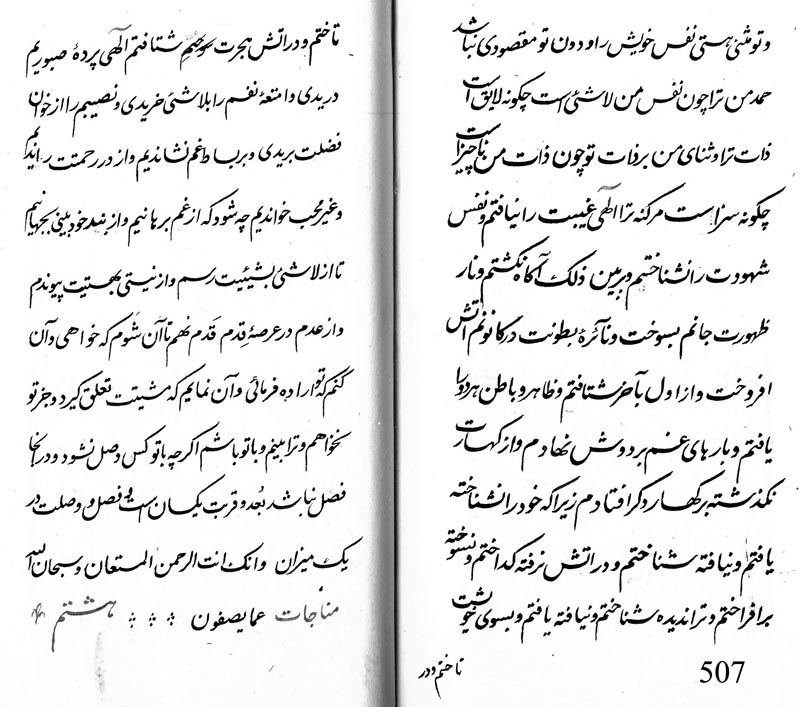 و تو مثنی هستی نفس خویش را و دون تو مقصودی نباشد
حمد من ترا چون نفس من لاشئی است چگونه لایق است
ذات ترا و ثنای من بر ذات تو چون ذات من ناچیز است
چگونه سزاست مر کنه ترا الهی غیبت را نیافتم و نفس
شهودت را نشناختم و بر بین ذلک آگاه نگشتم و نار
ظهورت جانم بسوخت و نائرهٔ بطونت در کانونم آتش
افروخت و از اول بآخر شتافتم و ظاهر و باطن هر دو را
یافتم و بارهای غم بر دوش نهادم و از کهسارت
نگذشته بر کهسار دگر افتادم زیرا که خود را نشناخته
یافتم و نیافته شناختم و در آتش نرفته گداختم و نسوخته
برافراختم و ترا ندیده شناختم و نیافته یافتم و بسوی خویشت
تاختم و در
507
تاختم و در آتش هجرت سوختم شتافتم الهی پردهٔ صبوریم
دریدی و امتعهٔ نفسم را بلاشئی خریدی و نصیبم را از خوان
فضلت بریدی و بر بساط غم نشاندیم و از در رحمت راندیم
و غیر محب خواندیم چه شود که از غم برهانیم و از بند خودبینی بجهانیم
تا از لاشئی بشیئیت رسم و از نیستی بهستیت پیوندم
و از عدم در عرصهٔ قدم قدم نهم تا آن شوم که خواهی و آن
کنم که تو اراده فرمائی و آن نمایم که مشیتت تعلق گیرد و جز تو
نخواهم و ترا بینم و با تو باشم اگر چه با تو کس وصل نشود و در آنجا
فصل نباشد بعد و قربت یکسان است و فصل و وصلت در
یک میزان و انک انت الرحمن المستعان و سبحان الله
عما یصفون مناجات هشتم